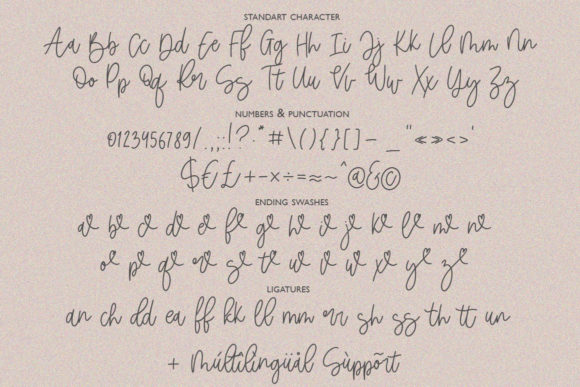 STANDART CHARACTER
Aa Bb Cc Dd Ee Ff Gg Hh Ii Jj Kk Ll Mm Nn
Oo Pp Qq Rr Ss Tt Uu Vv Ww Xx Yy Zz
NUMBERS & PUNCTUATION
0123456789/.,;:!?·*#\(){}[]-_"«»<>'
$€£+-×÷=≈~^@&©
ENDING SWASHES
a b c d e f g h i j k l m n
o p q r s t u v w x y z
LIGATURES
an ch dd ea ff kk ll mm rr sh ss th tt un
+ Múltîlíngüål Sùppõrt